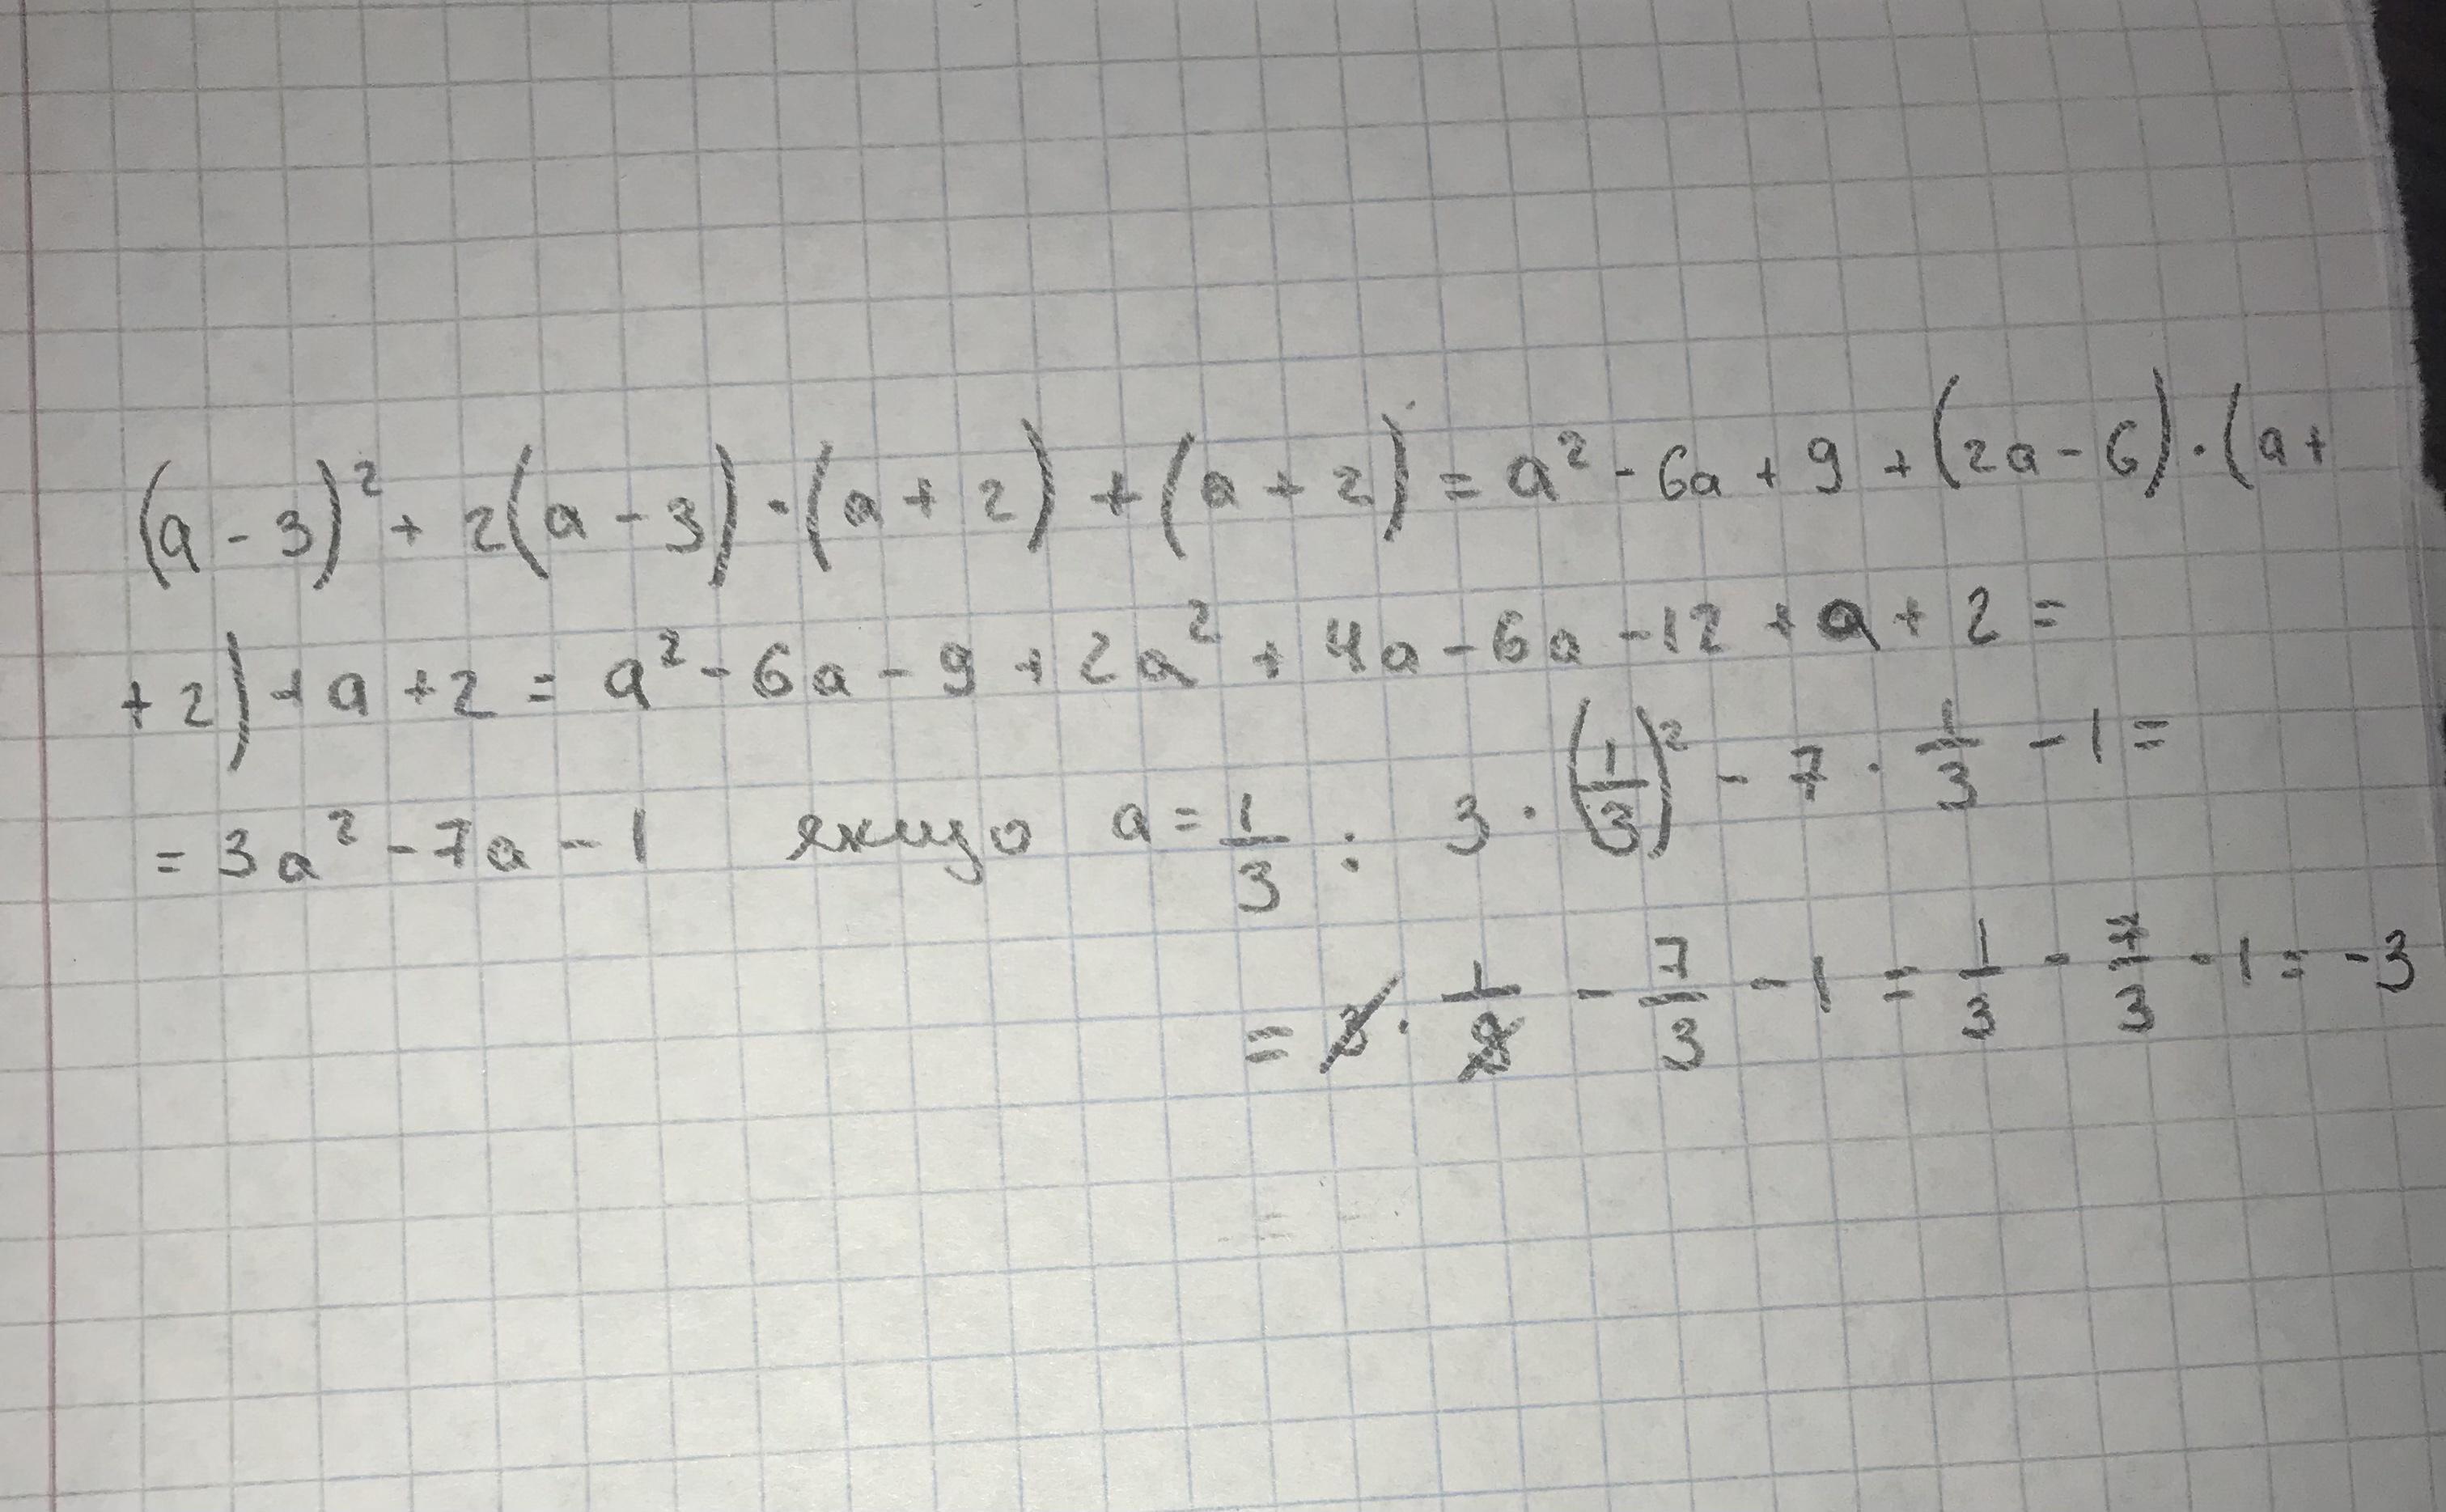 (a - 3)² + 2(a - 3) · (a + 2) + (a + 2) = a² - 6a + 9 + (2a - 6) · (a +
+ 2) + a + 2 = a² - 6a - 9 + 2a² + 4a - 6a - 12 + a + 2 =
= 3a² - 7a - 1 якщо a = 1/3 : 3 · (1/3)² - 7 · 1/3 - 1 =
= 3 · 1/9 - 7/3 - 1 = 1/3 - 7/3 - 1 = -3